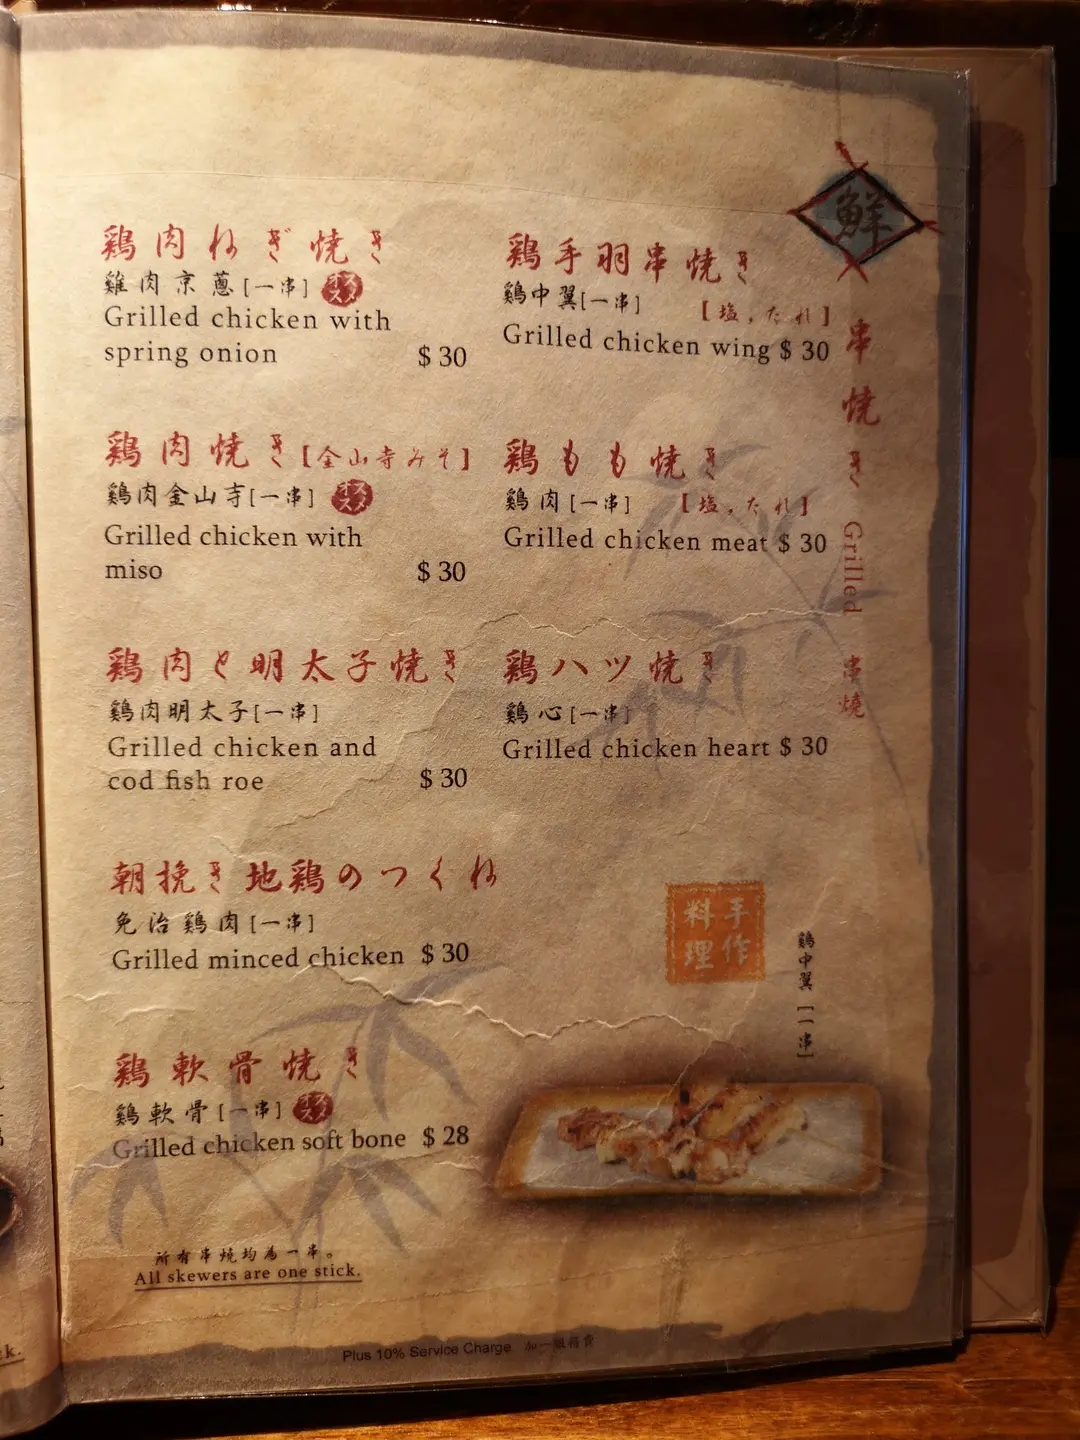 鶏肉ねぎ焼き
雞肉京蔥[一串] オススメ
Grilled chicken with
spring onion $ 30
鶏肉焼き【金山寺みそ】
鷄肉金山寺[一串] オススメ
Grilled chicken with
miso $ 30
鶏肉と明太子焼き
鷄肉明太子[一串]
Grilled chicken and
cod fish roe $ 30
朝挽き地鶏のつくね
免治鷄肉[一串]
Grilled minced chicken $ 30
鶏軟骨焼き
鷄軟骨[一串] オススメ
Grilled chicken soft bone $ 28
所有串燒均為一串。
All skewers are one stick.
鶏手羽串焼き
鷄中翼[一串]
【塩，たれ】
Grilled chicken wing $ 30
鶏もも焼き
鷄肉[一串] 【塩，たれ】
Grilled chicken meat $ 30
鶏ハツ焼き
鷄心[一串]
Grilled chicken heart $ 30
手作
料理
鷄中翼[一串]
鮮
串焼き Grilled 串燒
Plus 10% Service Charge 加一服務費